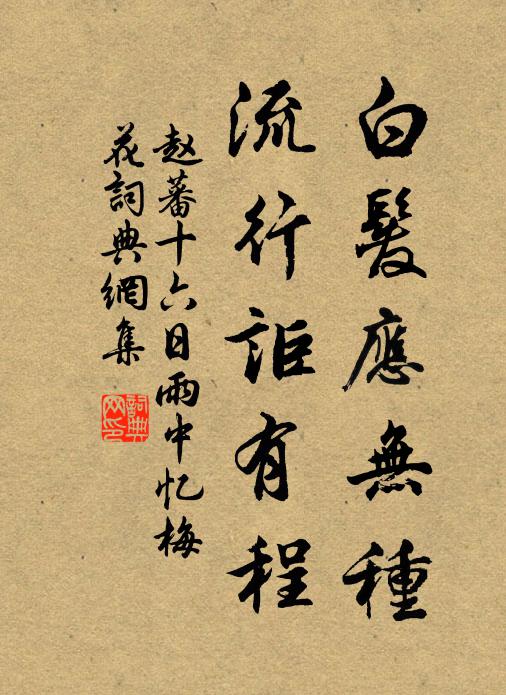 白髮應無種
流行詎有程
赵蕃十六日雨中忆梅
花詞典網集
詞典
网印